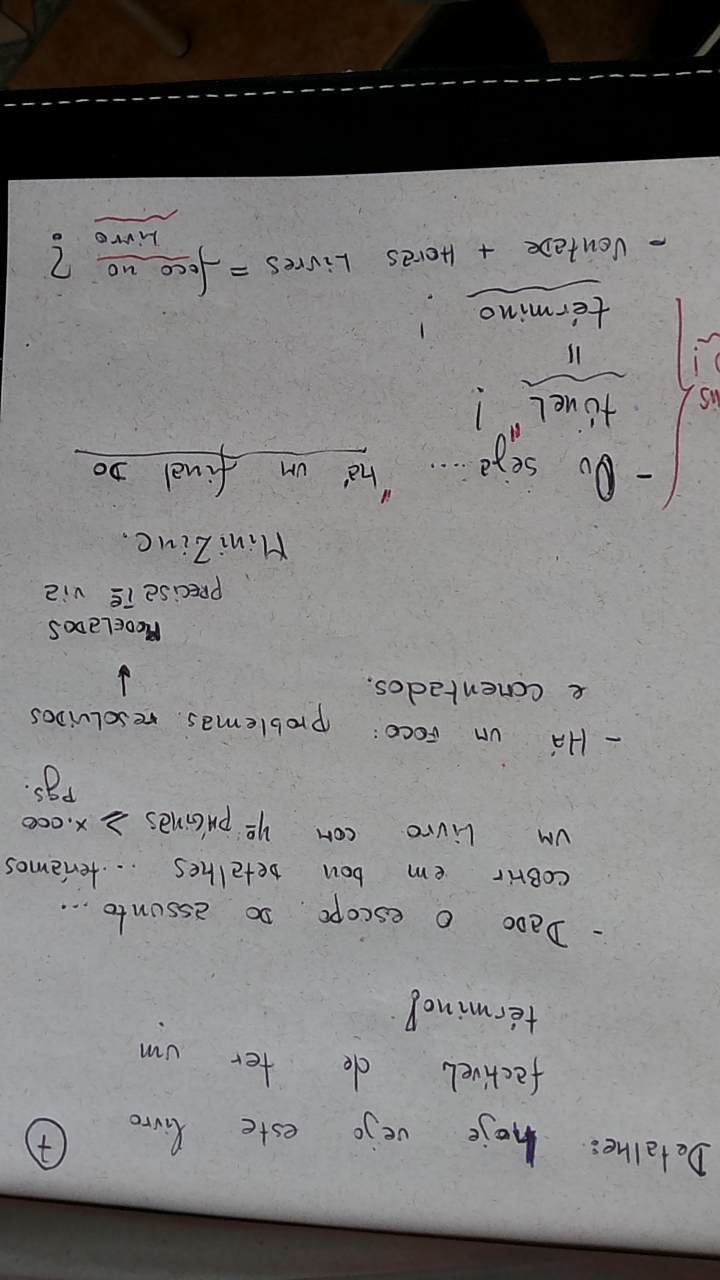 Detalhe: hoje vejo este livro 7
factível de ter um
término!
- Dado o escopo do assunto ...
cobrir em bom detalhes ... teríamos
um livro com nº páginas ≥ x.000
pgs.
- Há um foco: problemas resolvidos
e comentados.
↓
MODELADOS
precisa/e via
MiniZinc.
- Ou seja .... "há um final do
túnel"!
=
término!
- Vontade + Horas Livres = foco no ?
livro